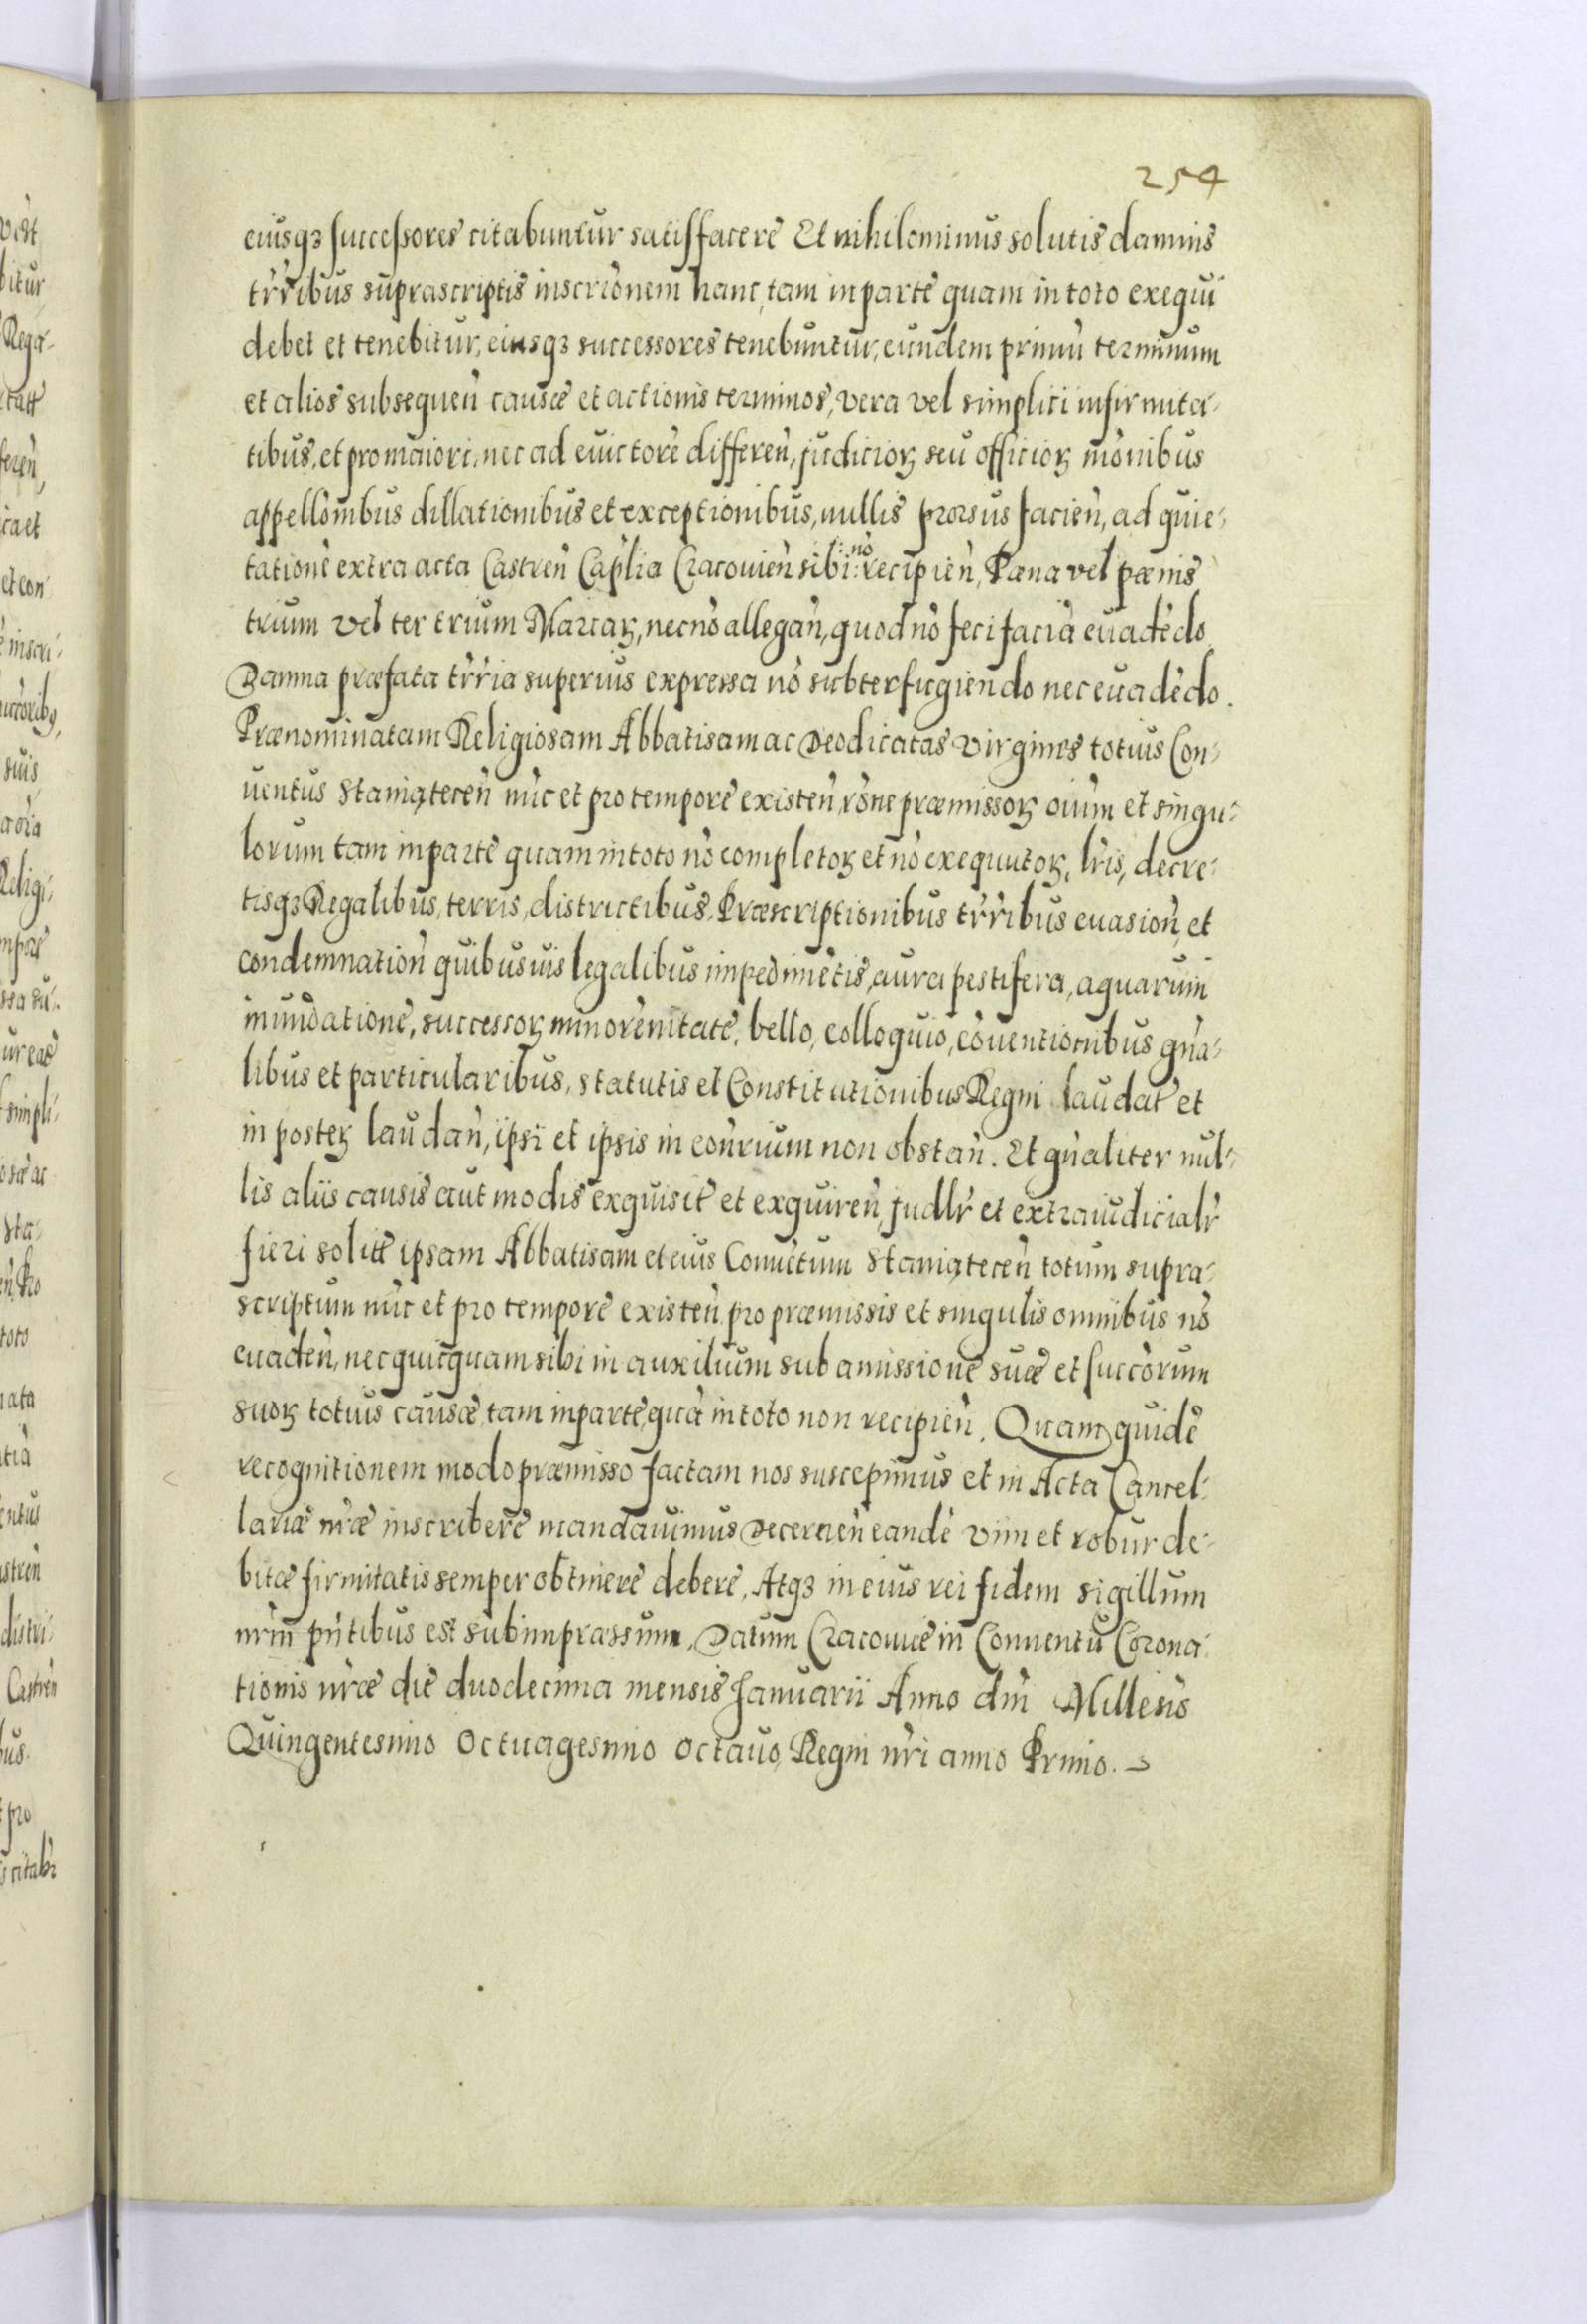 254
eiusqꝫ successores citabuntur satisfacere Et nihilominus solutis damnis
trr̀ibus suprascriptis inscrionem hanc, tam in parte quam in toto exequi
debet et tenebitur, eiusqꝫ successores tenebuntur, eundem primũ terminum
et alios subsequen̄ causæ et actionis terminos, vera vel simplici infirmita-
tibus, et pro maiori, nec ad euictorẽ differen̄, judicioꝝ seu officioꝝ mōnibus
appellōnibus dillationibus et exceptionibus, nullis prorsus facien̄, ad quie-
tationẽ extra acta Castren̄ Cap̄lia Cracouien̄ sibi nō recipien̄, Pæna vel pænis
trium vel ter trium Marcaꝝ, nec nō allegan̄, quod nō feci faciã euadẽdo
Damna præfata trr̀ia superius expressa nō subterfugiendo nec euadẽdo.
Prænominatam Religiosam Abbatisam ac Deodicatas virgines totius Con-
uentus Staniątecen̄ nũc et pro tempore existen̄, rōne præmissoꝝ oīum et singu-
lorum tam in parte quam in toto nō completoꝝ et nō exequutoꝝ, lr̄is, decre-
tisqꝫ Regalibus, terris, districtibus, Præscriptionibus trr̀ibus euasion̄, et
condemnation̄ quibusuis legalibus impedimẽtis, aura pestifera, aquarum
inundatione, successoꝝ minorennitate, bello, colloquio, cõuentionibus gn̄a-
libus et particularibus, statutis et Constitutionibus Regni laudat̄ et
in posteꝝ laudan̄, ipsi et ipsis in con̄rium non obstan̄. Et gn̄aliter nul-
lis aliis causis aut modis exquisit̄ et exquiren̄, judlr̄ et extraiudicialr̄
fieri solitt̄ ipsam Abbatisam et eius Conuẽtum Staniątecen̄ totum supra-
scriptum nũc et pro tempore existen̄ pro præmissis et singulis omnibus nō
euaden̄, nec quicquam sibi in auxilium sub amissione suæ et succorum
suoꝝ totius causæ, tam in parte, quã in toto non recipien̄. Quam quidẽ
recognitionem modo præmisso factam nos suscepimus et in Acta Cancel-
lariæ nr̄æ inscribere mandauimus Decernen̄ eandẽ vim et robur de-
bitæ firmitatis semper obtinere debere, Atqꝫ in eius rei fidem sigillum
nr̄m pn̄tibus est subimpræssum. Datum Cracouiæ in Conuentu Corona-
tionis nr̄æ die duodecima mensis Januarii Anno dn̄i Millesio
Quingentesimo Octuagesimo Octauo, Regni nr̄i anno Primo.